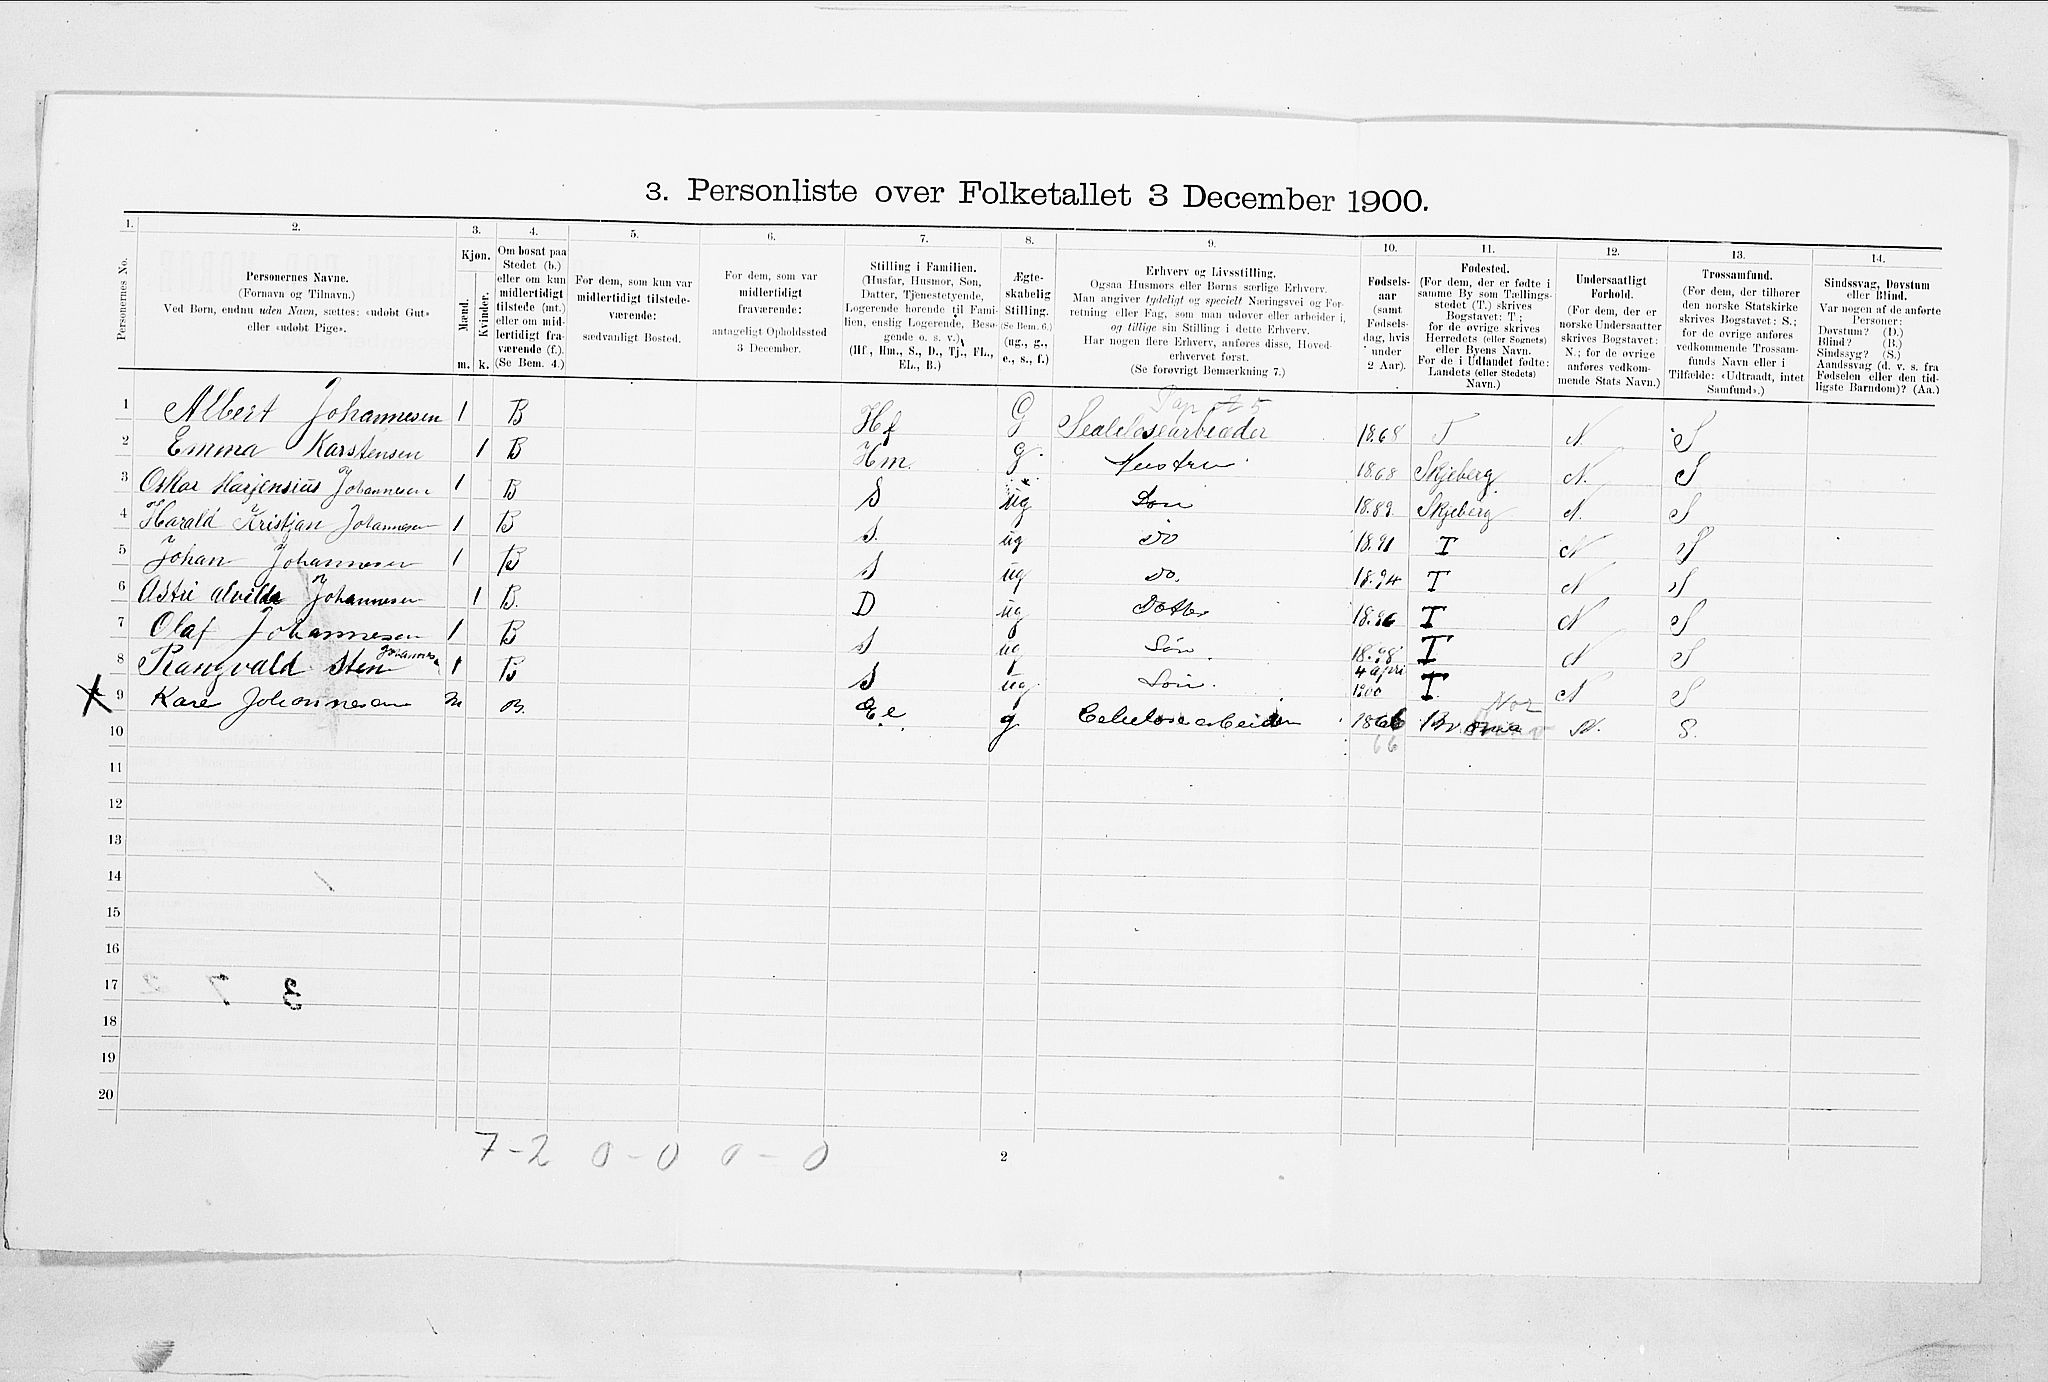 3. Personliste over Folketallet 3 December 1900.
1. 2. 3. 4. 5. 6. 7. 8. 9. 10. 11. 12. 13. 14.
Personernes No.
Personernes Navne.
(Fornavn og Tilnavn.)
Ved Børn, endnu uden Navn, sættes: «udøbt Gut»
eller «udøbt Pige».
Kjøn.
Mænd.
Kvinder.
m. k.
Om bosat paa
Stedet (b.)
eller om kun
midlertidigt
tilstede (mt.)
eller om mid-
lertidigt fra-
værende (f.).
(Se Bem. 4.)
For dem, som kun var
midlertidigt tilstede-
værende:
sædvanligt Bosted.
For dem, som var
midlertidigt
fraværende:
antageligt Opholdssted
3 December.
Stilling i Familien.
(Husfar, Husmor, Søn,
Datter, Tjenestetyende,
Logerende hørende til Fami-
lien, enslig Logerende, Besø-
gende o. s. v.)
(Hf., Hm., S., D., Tj., FL.,
EL., B.)
Ægte-
skabelig
Stilling.
(Se Bem. 6.)
(ug., g.,
e., s., f.)
Erhverv og Livsstilling.
Ogsaa Husmors eller Børns særlige Erhverv.
Man angiver tydeligt og specielt Næringsvei og For-
retning eller Fag, som man udøver eller arbeider i,
og tillige sin Stilling i dette Erhverv.
Har nogen flere Erhverv, anføres disse, Hoved-
erhvervet først.
(Se forøvrigt Bemærkning 7.)
Fødsels-
aar
(samt
Fødsels-
dag, hvis
under
2 Aar).
Fødested.
(For dem, der er fødte i
samme By som Tællings-
stedet (T.) skrives
Bogstavet: T.;
for de øvrige skrives
Herredets (eller Sognets)
eller Byens Navn.
For de i Udlandet fødte:
Landets (eller Stedets)
Navn.)
Undersaatligt
Forhold.
(For dem, der er
norske Undersaatter
skrives Bogstavet:
N.; for de øvrige
anføres vedkom-
mende Stats Navn.)
Trossamfund.
(For dem, der tilhører
den norske Statskirke
skrives Bogstavet: S.;
for de øvrige anføres
vedkommende Trossam-
funds Navn eller i
Tilfælde: «Udtraadt, intet
Samfund».)
Sindssvag, Døvstum
eller Blind.
Var nogen af de anførte
Personer:
Døvstum? (D.)
Blind? (B.)
Sindssyg? (S.)
Aandssvag (d. v. s. fra
Fødselen eller den tid-
ligste Barndom)? (Aa.)
1 Albert Johannesen 1 B Hf G 1868 T N. S
2 Emma Karstensen 1 B Hm. g. Hustru 1868 Skjeberg N. S
3 Oskar Marjensius Johannesen 1 B S ug Søn 1889. Skjeberg N. S
4 Harald Kristjan Johannesen 1 B S. ug Do 1891 T N S
5 Johan Johannesen 1 B S ug Do. 1894 T N S
6 Astri Alvilda Johannesen 1 B. D ug Datter 1896 T N S
7 Olaf Johannesen 1 B S ug Søn 1898 T N S
8 Rangvald Sten Johannesen 1 B S ug Søn. 4 april 1900 T N S
X 9 Kare Johannesen m B. E.l. g Celulosearbeider 1866 N. S.
66
10
11
12
13
14
15
16
17
18
19
20
7-2 0-0 0-0
2